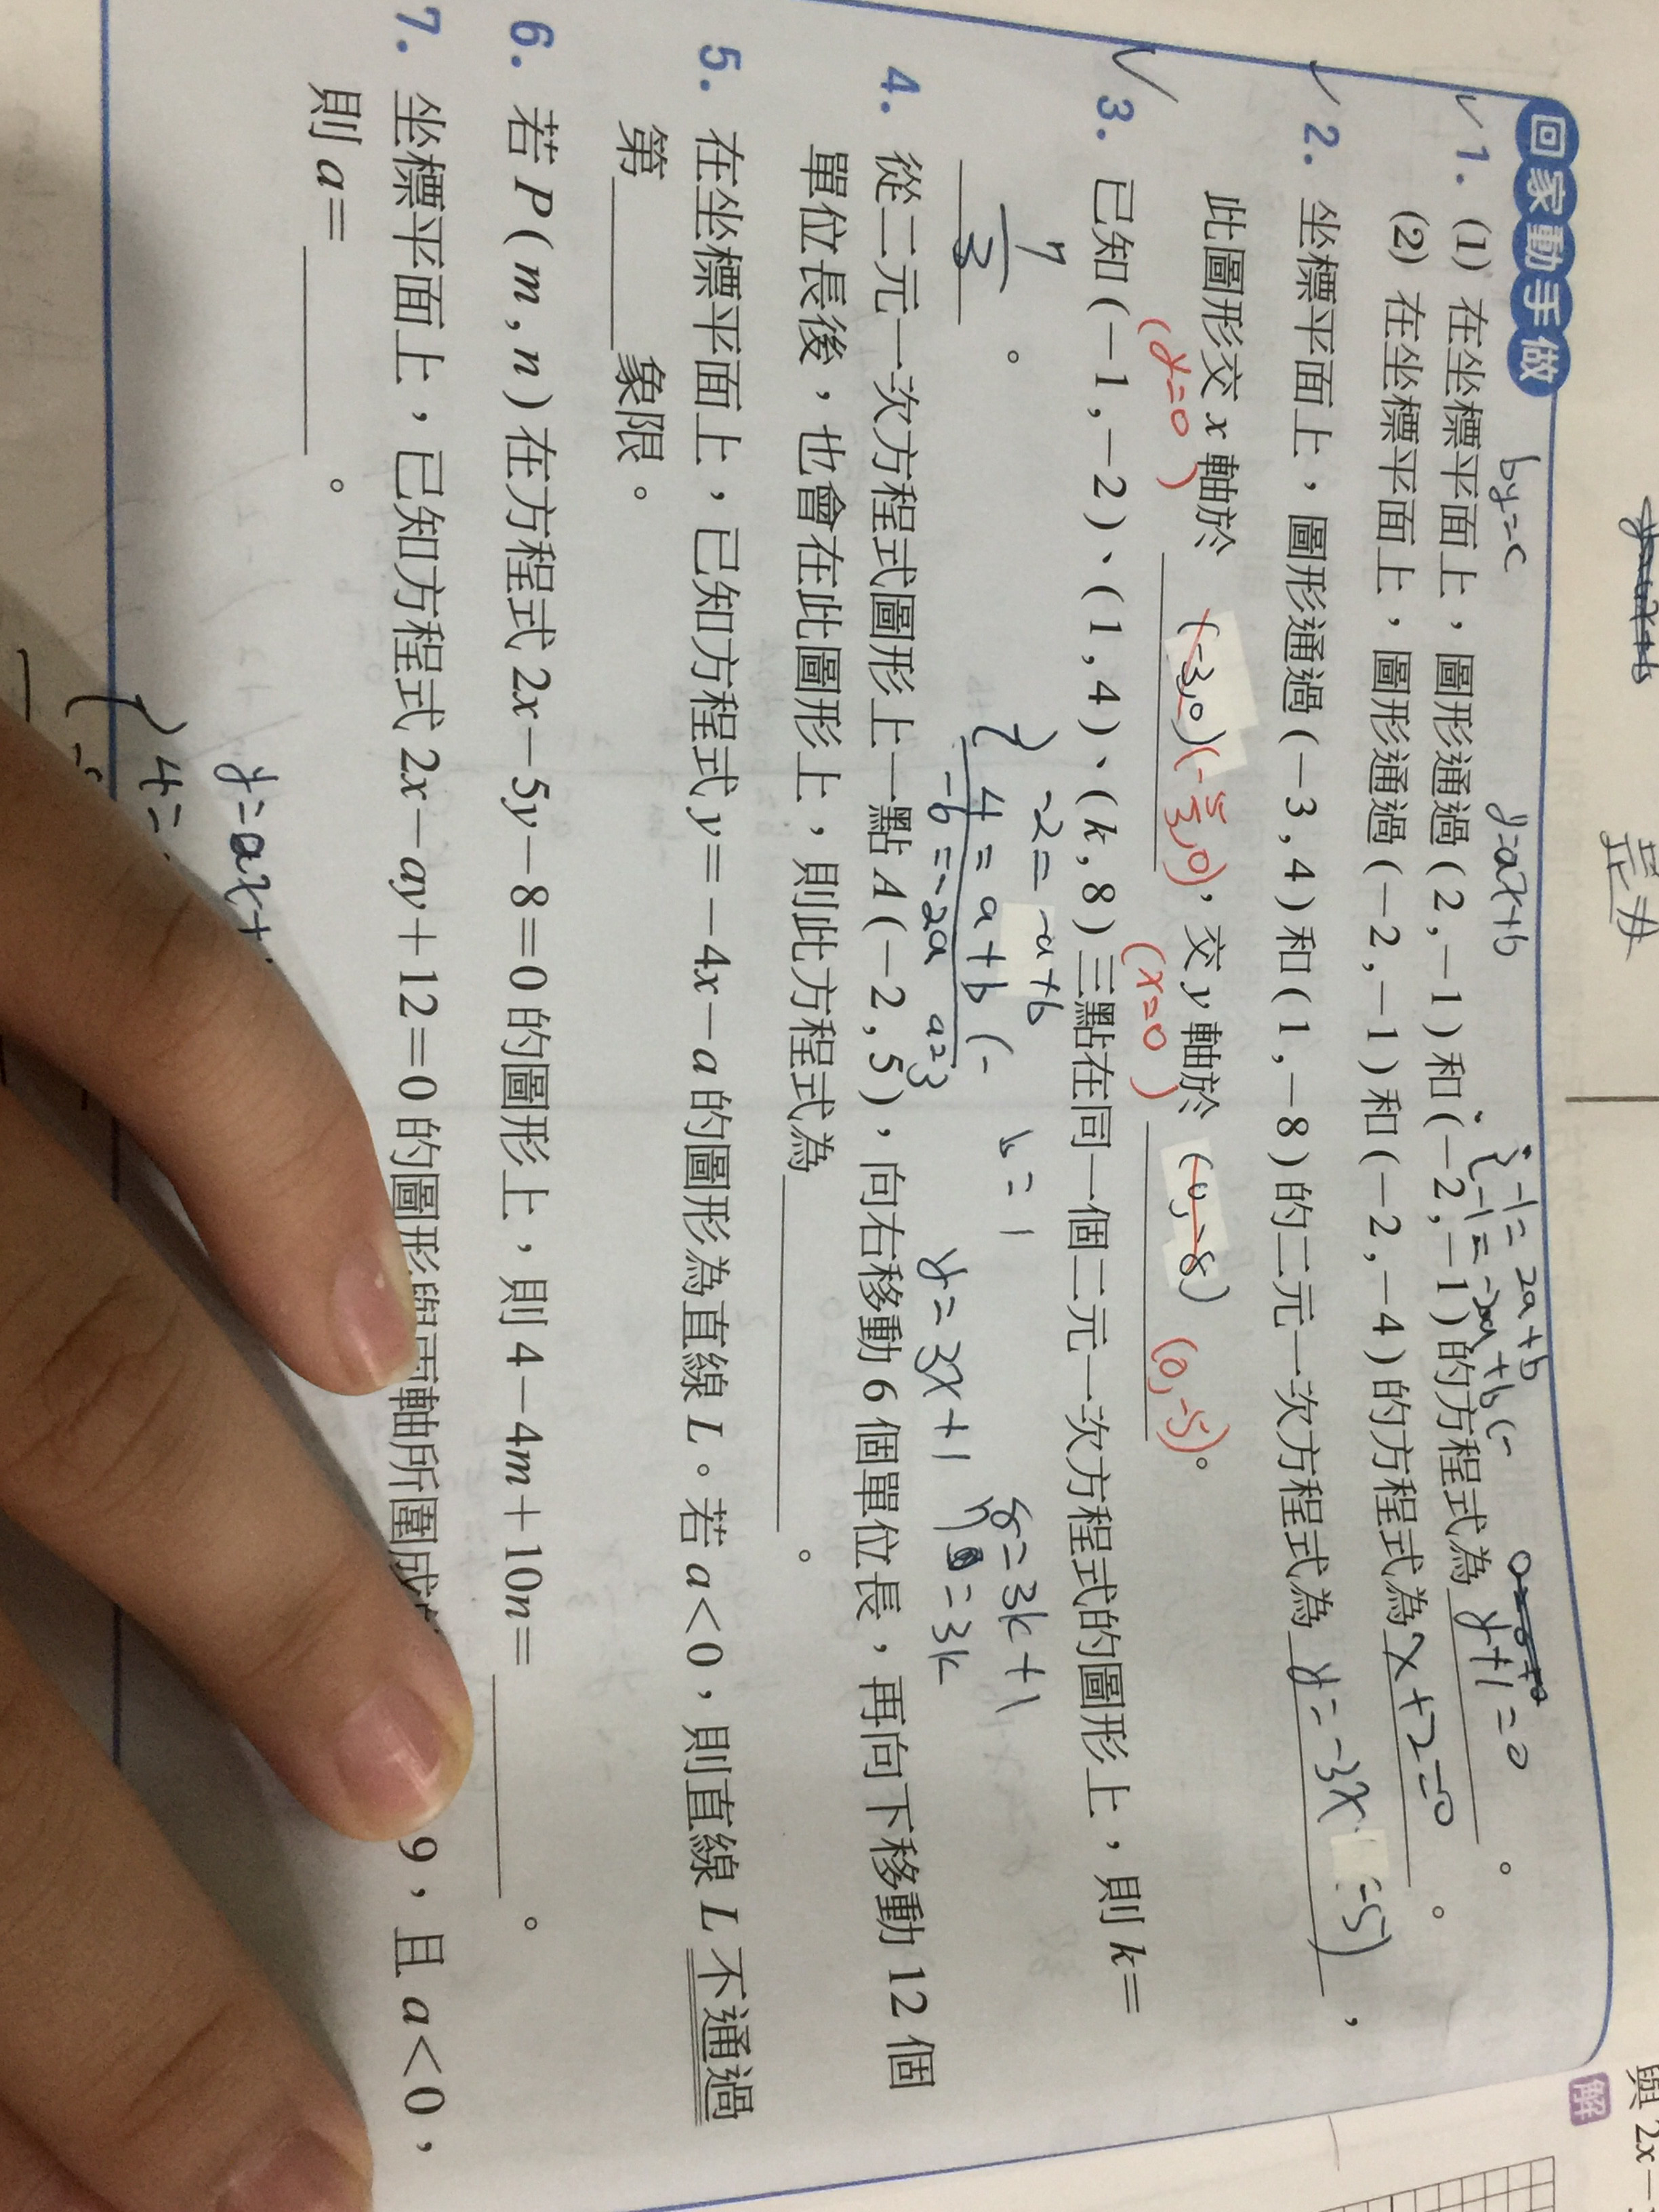 回家動手做
by=c
y=ax+b
-1=2a+b
-1=-2a+b(-
1. (1) 在坐標平面上，圖形通過(2,-1)和(-2,-1)的方程式為 y+1=0 。
(2) 在坐標平面上，圖形通過(-2,-1)和(-2,-4)的方程式為 x+2=0 。
2. 坐標平面上，圖形通過(-3,4)和(1,-8)的二元一次方程式為 y=-3x -5) ，
此圖形交 x 軸於 (-3,0)(-5/3,0)，交 y 軸於 (0,-8) (0,-5)。
(y=0)
(x=0)
3. 已知(-1,-2)、(1,4)、(k,8)三點在同一個二元一次方程式的圖形上，則 k=
7/3 。
-2=-a+b
4=a+b(-
-6=-2a a=3
b=1
y=3x+1
8=3k+1
7=3k
4. 從二元一次方程式圖形上一點 A(-2,5)，向右移動 6 個單位長，再向下移動 12 個
單位長後，也會在此圖形上，則此方程式為 。
5. 在坐標平面上，已知方程式 y=-4x-a 的圖形為直線 L。若 a<0，則直線 L 不通過
第 象限。
6. 若 P(m,n)在方程式 2x-5y-8=0 的圖形上，則 4-4m+10n= 。
7. 坐標平面上，已知方程式 2x-ay+12=0 的圖形與兩軸所圍成 9，且 a<0，
則 a= 。
y=ax+
4=
解
與 2x-